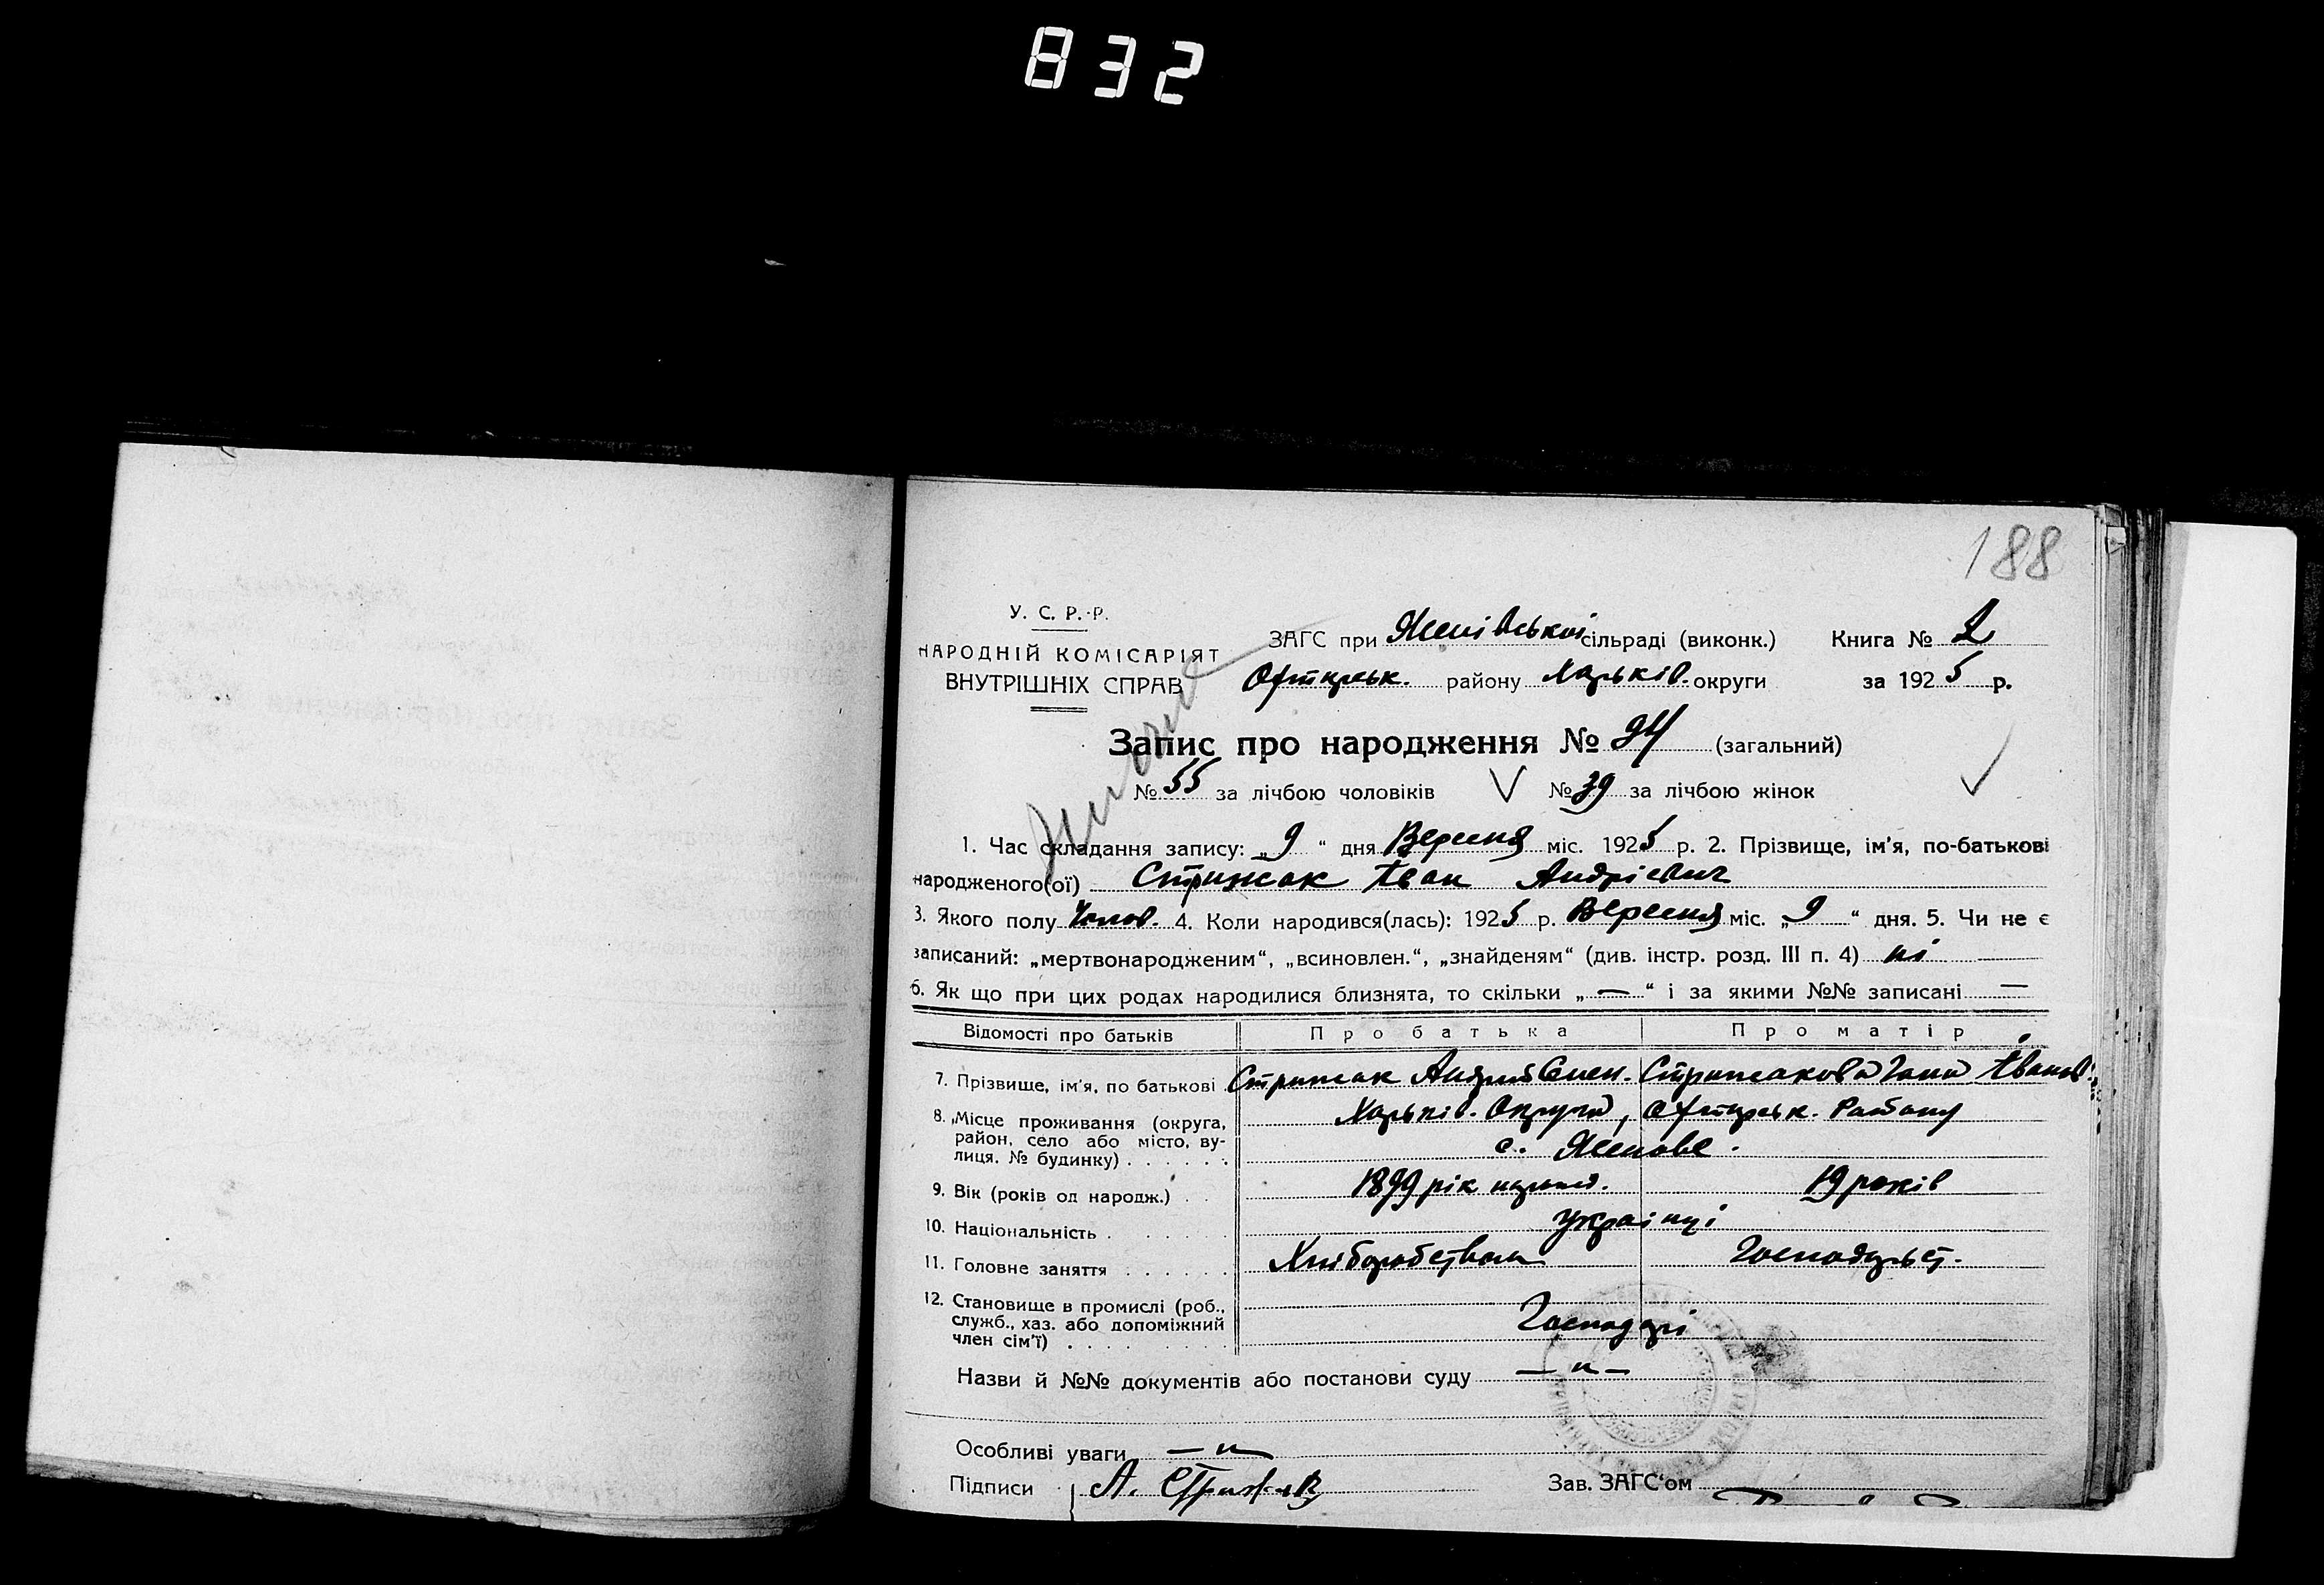 832
188
У. С. Р. Р.
НАРОДНІЙ КОМІСАРІЯТ
ВНУТРІШНІХ СПРАВ
ЗАГС при Ясенівській сільраді (виконк.) Книга № 2
Охтирськ. району Харьків. округи за 1925 р.
Запис про народження № 94 (загальний)
№ 55 за лічбою чоловіків V № 39 за лічбою жінок
1. Час складання запису: „9“ дня Вересня міс. 1925 р. 2. Прізвище, ім'я, по-батькові
народженого(ої) Стрижак Іван Андрієвич
3. Якого полу Чолов. 4. Коли народився(лась): 1925 р. Вересня міс. „9“ дня. 5. Чи не є
записаний: „мертвонародженим“, „всиновлен.“, „знайденям“ (див. інстр. розд. III п. 4) ні —
6. Як що при цих родах народилися близнята, то скільки „—“ і за якими №№ записані —
Відомості про батьків Про батька Про матір
7. Прізвище, ім'я, по батькові Стрижак Андрій Семен. Стрижакова Ганна Іванов.
8. Місце проживання (округа, район, село або місто, вулиця, № будинку) Харьків. Округа, Охтирськ. Району
с. Ясенове.
9. Вік (років од народж.) 1899 рік народ. 19 років
10. Національність українці
11. Головне заняття Хліборобством Господарст.
12. Становище в промислі (роб.,
служб., хаз. або допоміжний
член сім'ї) Господарі
Назви й №№ документів або постанови суду — „ —
Особливі уваги — „ —
Підписи А. Стрижак Зав. ЗАГС'ом